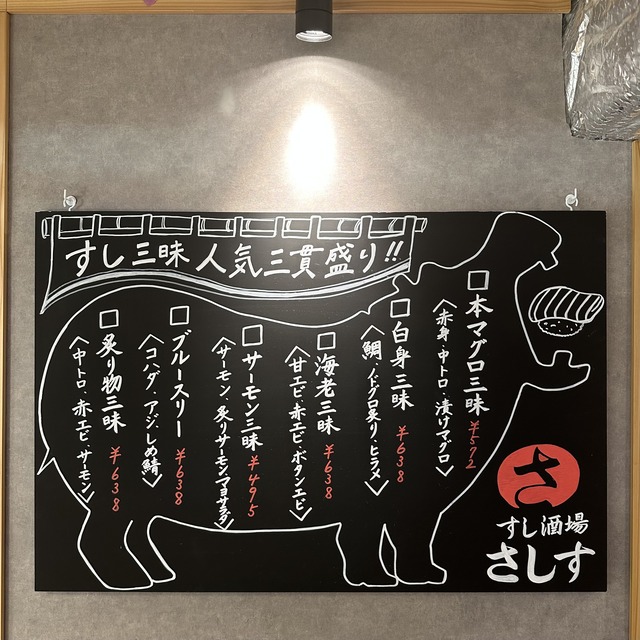 すし三昧 人気三貫盛り!!
□本マグロ三昧 ¥572
〈赤身・中トロ・漬けマグロ〉
□白身三昧 ¥638
〈鯛・ノドグロ炙り・ヒラメ〉
□海老三昧 ¥638
〈甘エビ・赤エビ・ボタンエビ〉
□サーモン三昧 ¥495
〈サーモン・炙りサーモン・マヨサラダ〉
□ブルースリー ¥638
〈コハダ・アジ・しめ鯖〉
□炙り物三昧 ¥638
〈中トロ・赤エビ・サーモン〉
さ
すし酒場
さしす